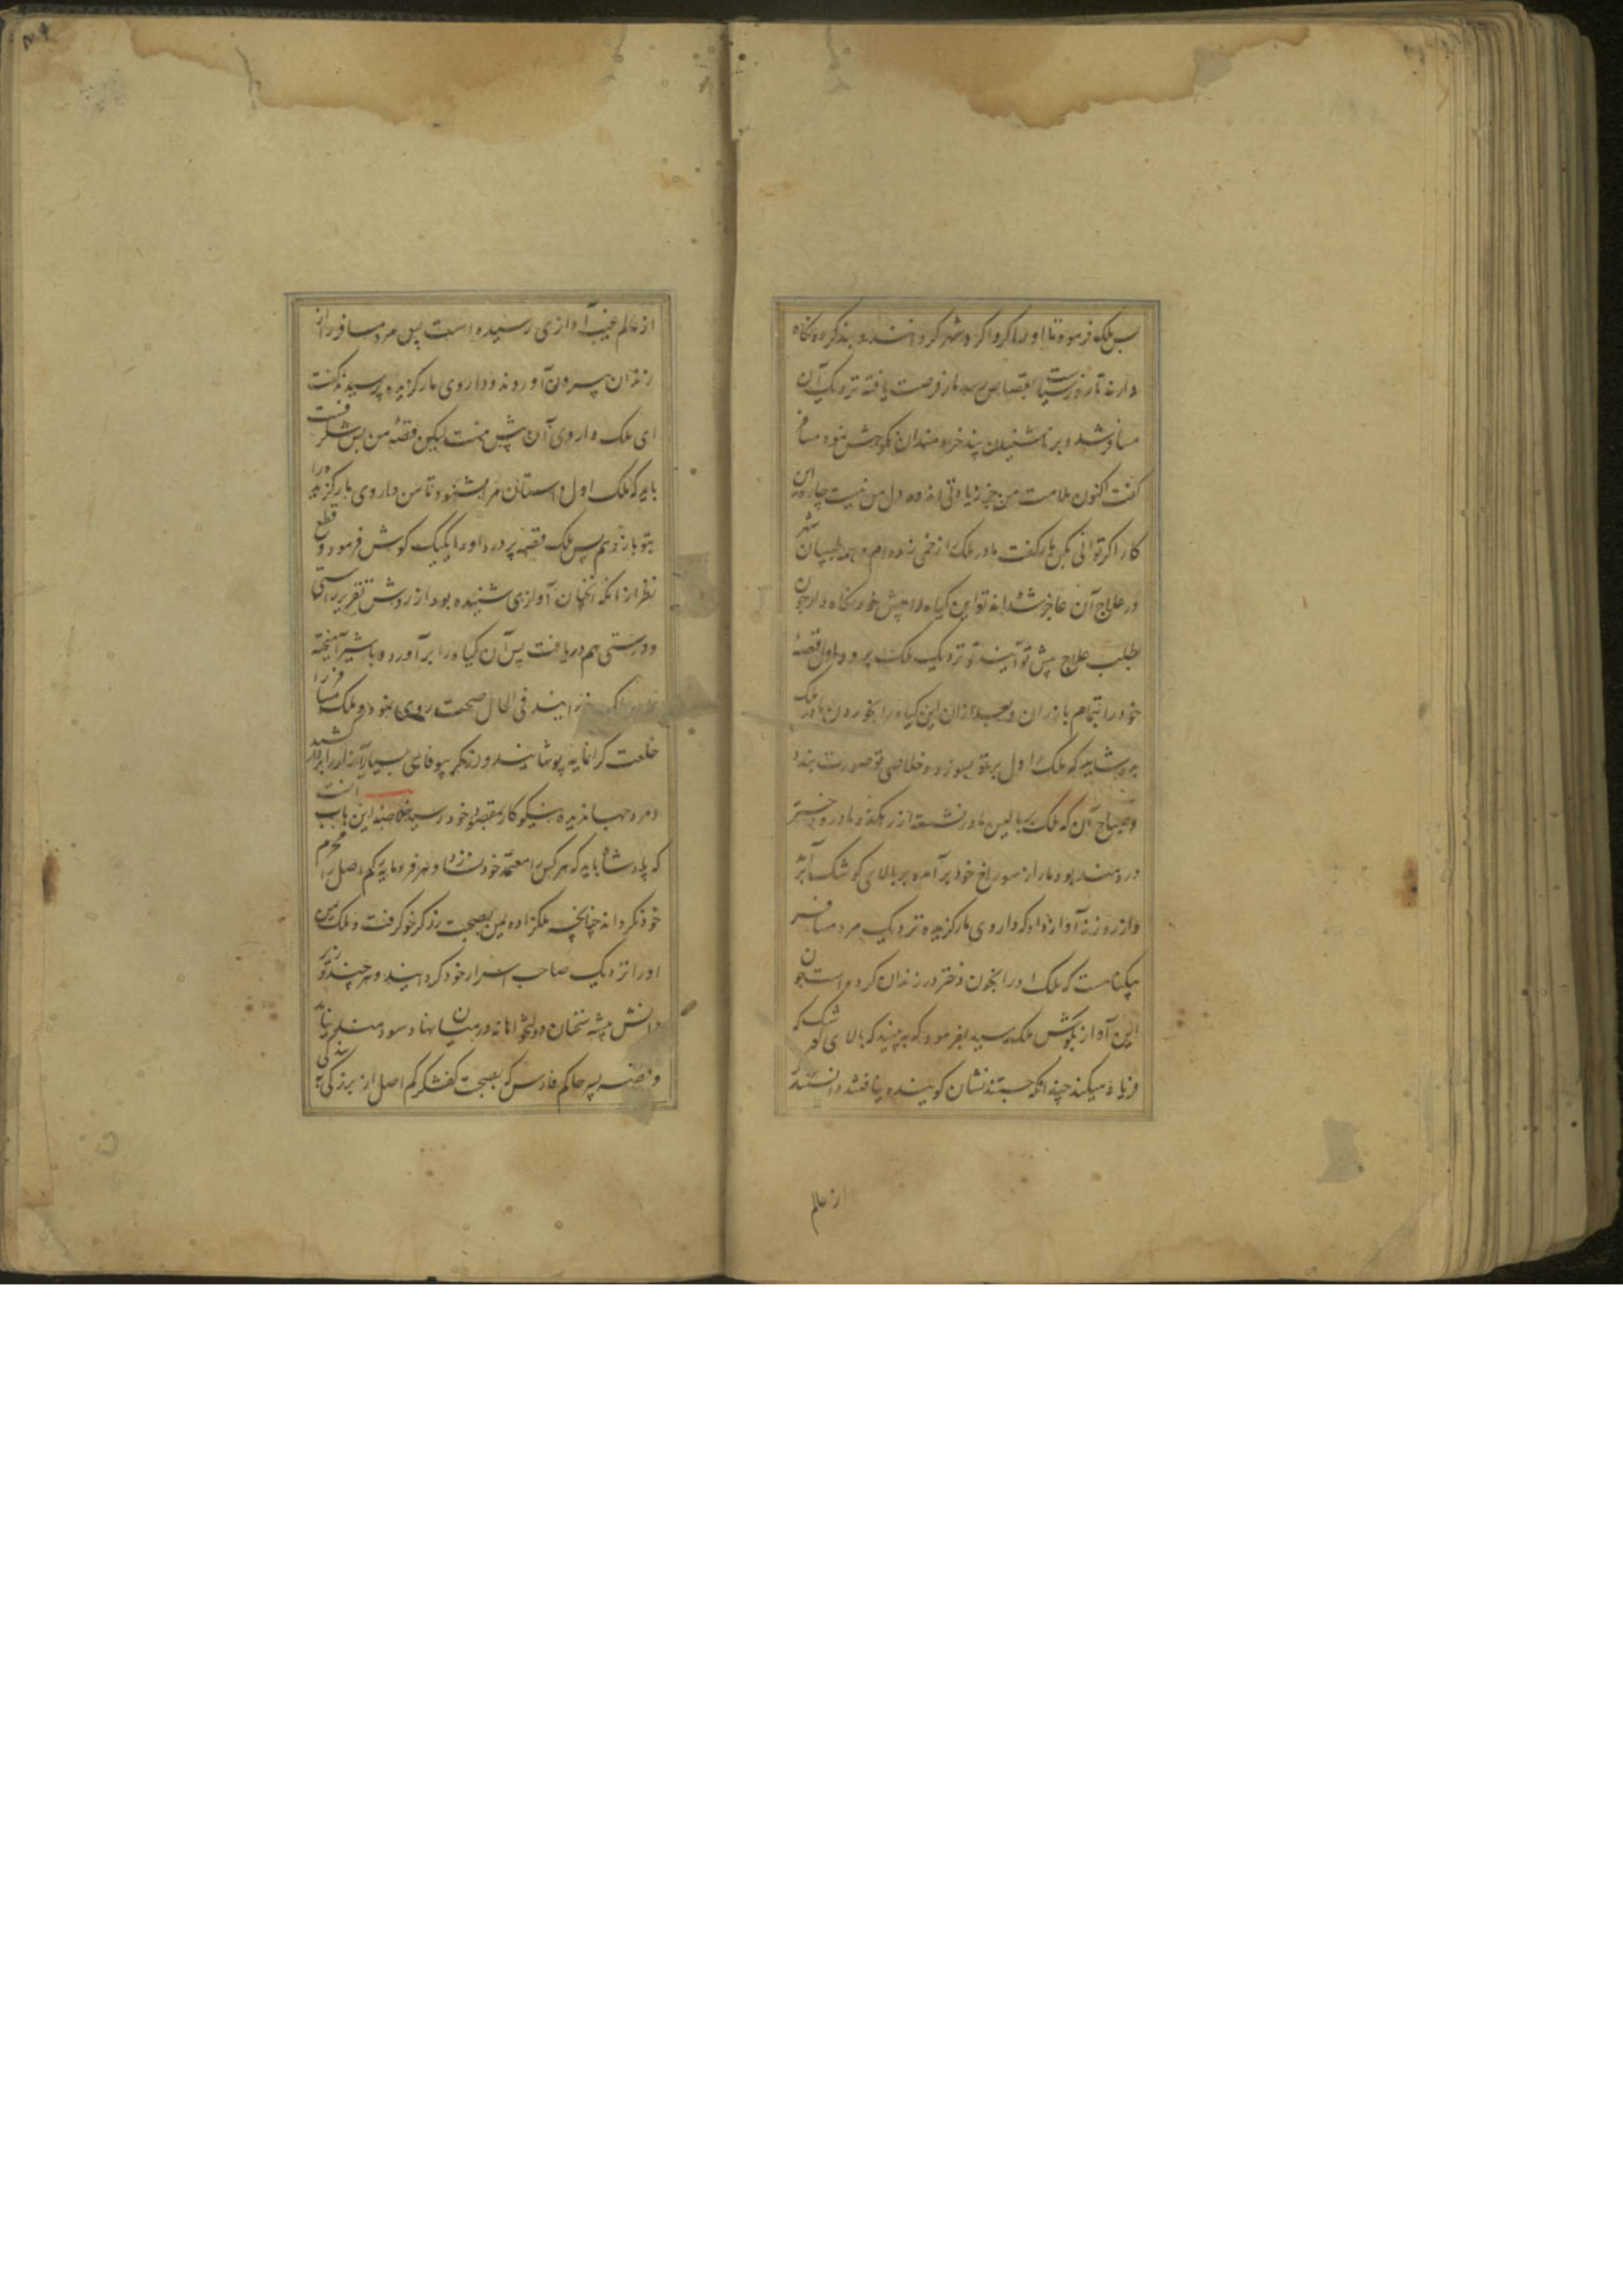 پس ملک فرمود تا او را کرداکرد شهر کردانند و بند کرده نکاه
دارند تا روز سیاست بقصاص رسد مار فرصت یافته نزدیک آن
مسافر شد و بر ناشنیدن پند خردمندان نکوهش نمود مسافر
کفت اکنون ملامت من جز زیادتی اندوه دل من نیست چاره این
کار اکر توانی بکن مار کفت مادر ملک را زخمی زده ام و همه طبیبان شهر
در علاج آن عاجز شده اند تو این کیاه را پیش خود نکاه دار چون
بطلب علاج پیش تو آیند تو نزدیک ملک برو و اول قصهٔ
خود را بتمام باز ران و بعد از ان این کیاه را بخوردن مادر ملک
بده شاید که ملک را دل بر تو بسوزد و خلاصی تو صورت بندد
و صباح آن که ملک ببالین مادر نشسته از رهکذر مادر و دختر
دردمند بود مار از سوراخ خود برآمده بر بالای کوشک آمد
و از روزنه آواز داد که داروی مار کزیده نزدیک مرد مسافر
بیکناهست که ملک او را بخون دختر در زندان کرده است چون
این آواز بکوش ملک رسید بفرمود که به بینید که بالای کوشک که
فریاد میکند چندانکه جستند نشان کوینده نیافتند دانستند که
از عالم
از عالم غیب آوازی رسیده است پس مرد مسافر را از
زندان بیرون آوردند و داروی مار کزیده پرسیدند کفت
ای ملک داروی آن پیش منست لیکن قصهٔ من بس شکرفست
باید که ملک اول داستان مرا بشنود تا من داروی مار کزیده را
بتو باز دهم پس ملک قصه پر درد او را یکیک کوش فرمود و قطع
نظر از انکه انچنان آوازی شنیده بود از روش تقریر راستی
و درستی هم دریافت پس آن کیاه را برآورده با شیر آمیخته
خورانیدند فی الحال صحت روی نمود و ملک مسافر را
خلعت کرانمایه پوشانید و زرکر بیوفا بسی بسیار آزار را بردار کشید
و مرد جهاندیده نیکوکار بمقصود خود رسید خلاصهٔ این باب آنست
که پادشاه باید که هر کس را معتمد خود نسازد و هر فرومایهٔ کم اصل را محرم
خود نکرداند چنانچه ملکزاده یمن بصحبت زرکر خو کرفت و ملک یمن
او را نزدیک صاحب اسرار خود کردانید و هر چند وزیر
دانش پیشه سخنان دولتخواهانه در میان نهاد سودمند نیامد
و قصهٔ پسر حاکم فارس که بصحبت کفشکر کم اصل از بزرکی به بندکی